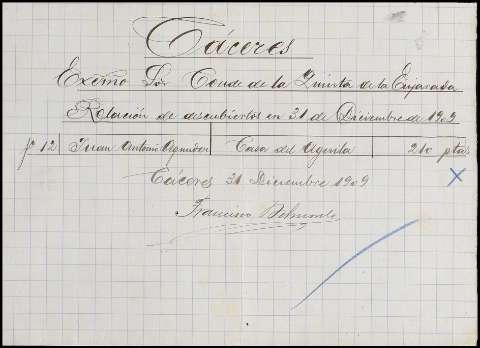 Cáceres
Exemo Sor Conde de la Quinta de la Enjarada
Relación de descubiertos en 31 de Diciembre de 1909
fo 12 Juan Antonio Casa del Aguila 210 ptas
Cáceres 31 Diciembre 1909
Francisco Belmonte